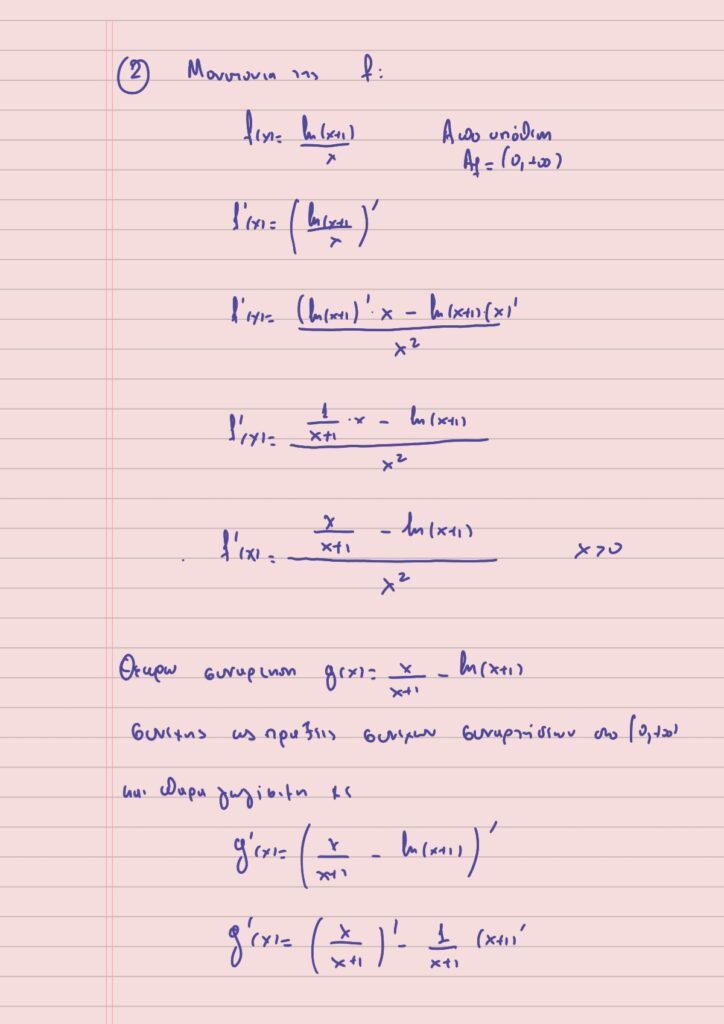 ② Μονοτονια της f:
f(x) = ln(x+1)/x Απο υπόθεση
Af = (0,+∞)
f'(x) = (ln(x+1)/x)'
f'(x) = ((ln(x+1))'·x − ln(x+1)(x)')/x²
f'(x) = (1/(x+1)·x − ln(x+1))/x²
f'(x) = (x/(x+1) − ln(x+1))/x² x>0
Θεωρω συναρτηση g(x) = x/(x+1) − ln(x+1)
συνεχης ως πραξεις συνεχων συναρτήσεων στο (0,+∞)
και παραγωγίσιμη με
g'(x) = (x/(x+1) − ln(x+1))'
g'(x) = (x/(x+1))' − 1/(x+1) (x+1)'